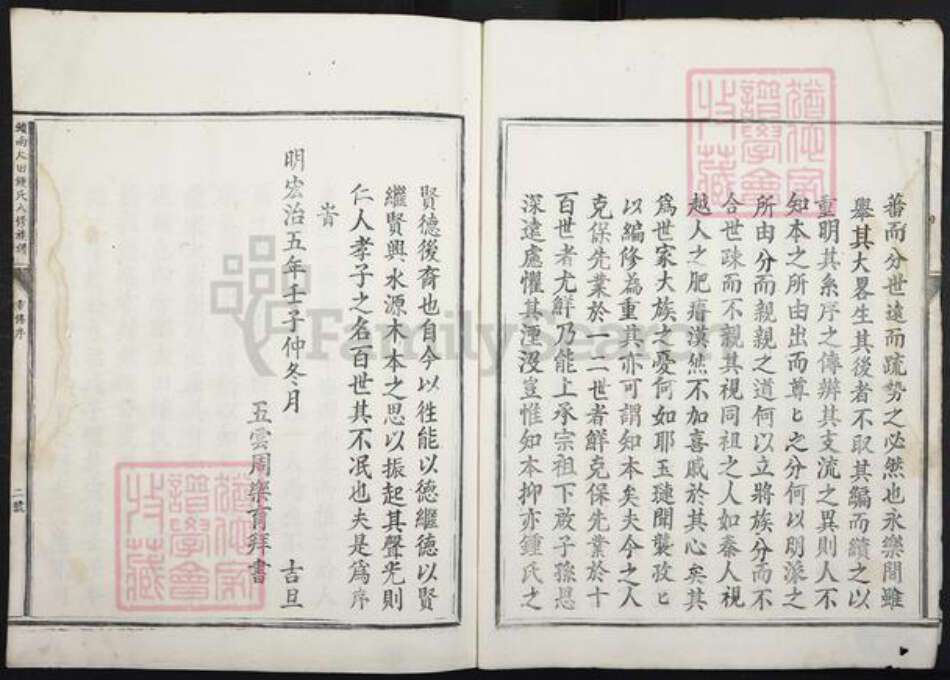 蕃而分世遠而疏勢之必然也永樂間雖
舉其大畧生其後者不取其編而續之以
重明其系序之傳辨其支流之異則人不
知本之所由出而尊匕之分何以明派之
所由分而親親之道何以立將族分而不
合世疎而不親其視同祖之人如秦人視
越人之肥瘠漠然不加喜戚於其心矣其
爲世家大族之憂何如耶玉璉聞襲孜匕
以編修為重其亦可謂知本矣夫今之人
克保先業於一二世者鮮克保先業於十
百世者尤鮮乃能上承宗祖下啟子孫思
深遠慮懼其湮沒豈惟知本抑亦鍾氏之
賢德後裔也自今以徃能以德繼德以賢
繼賢興水源木本之思以振起其聲光則
仁人孝子之名百世其不泯也夫是爲序
旹
明宏治五年壬子仲冬月 吉旦
五雲周樂育拜書
田鍾氏六修族譜
序
二號
猶他家
譜學會
收藏
猶他家
譜學會
收藏
FamilySearch